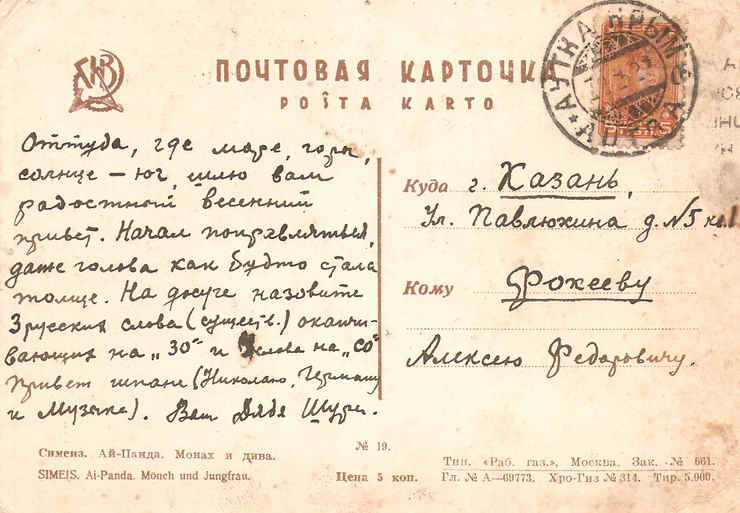 ПОЧТОВАЯ КАРТОЧК
POŜTA KARTO
АУТКА КРЫМ
Оттуда, где море, горы,
солнце – юг, шлю вам
радостный весенний
привет. Начал поправляться,
даже голова как будто стала
толще. На досуге назовите
3 русских слова (существ.) оканчи-
вающихся на „ЗО" и слова на „СО"
Привет шпане (Николаю, Герману
и Музычке). Ваш Дядя Шура.
Куда г. Казань,
Ул. Павлюхина д. №5 кв. 1
Кому Фокееву
Алексею Федоровичу.
Симеиз. Ай-Панда. Монах и дива.
SIMEIS. Ai-Panda. Mönch und Jungfrau.
№ 19.
Цена 5 коп.
Тип. «Раб. газ.», Москва. Зак. № 661.
Гл. № А—69773. Хро-Гиз № 314. Тир. 5.000.